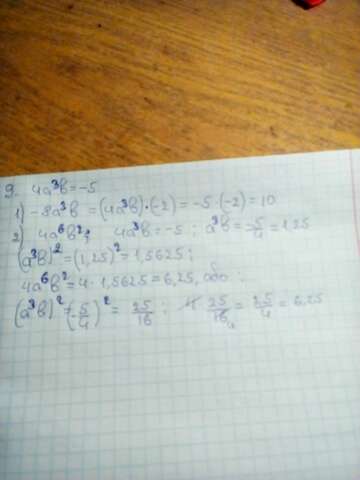 9. 4a³b = -5
1) -8a³b = (4a³b)·(-2) = -5·(-2) = 10
2) 4a⁶b²; 4a³b = -5; a³b = -5/4 = 1,25
(a³b)² = (1,25)² = 1,5625;
4a⁶b² = 4·1,5625 = 6,25, або:
(a³b)² = (-5/4)² = 25/16; 4 25/16₄ = 25/4 = 6,25